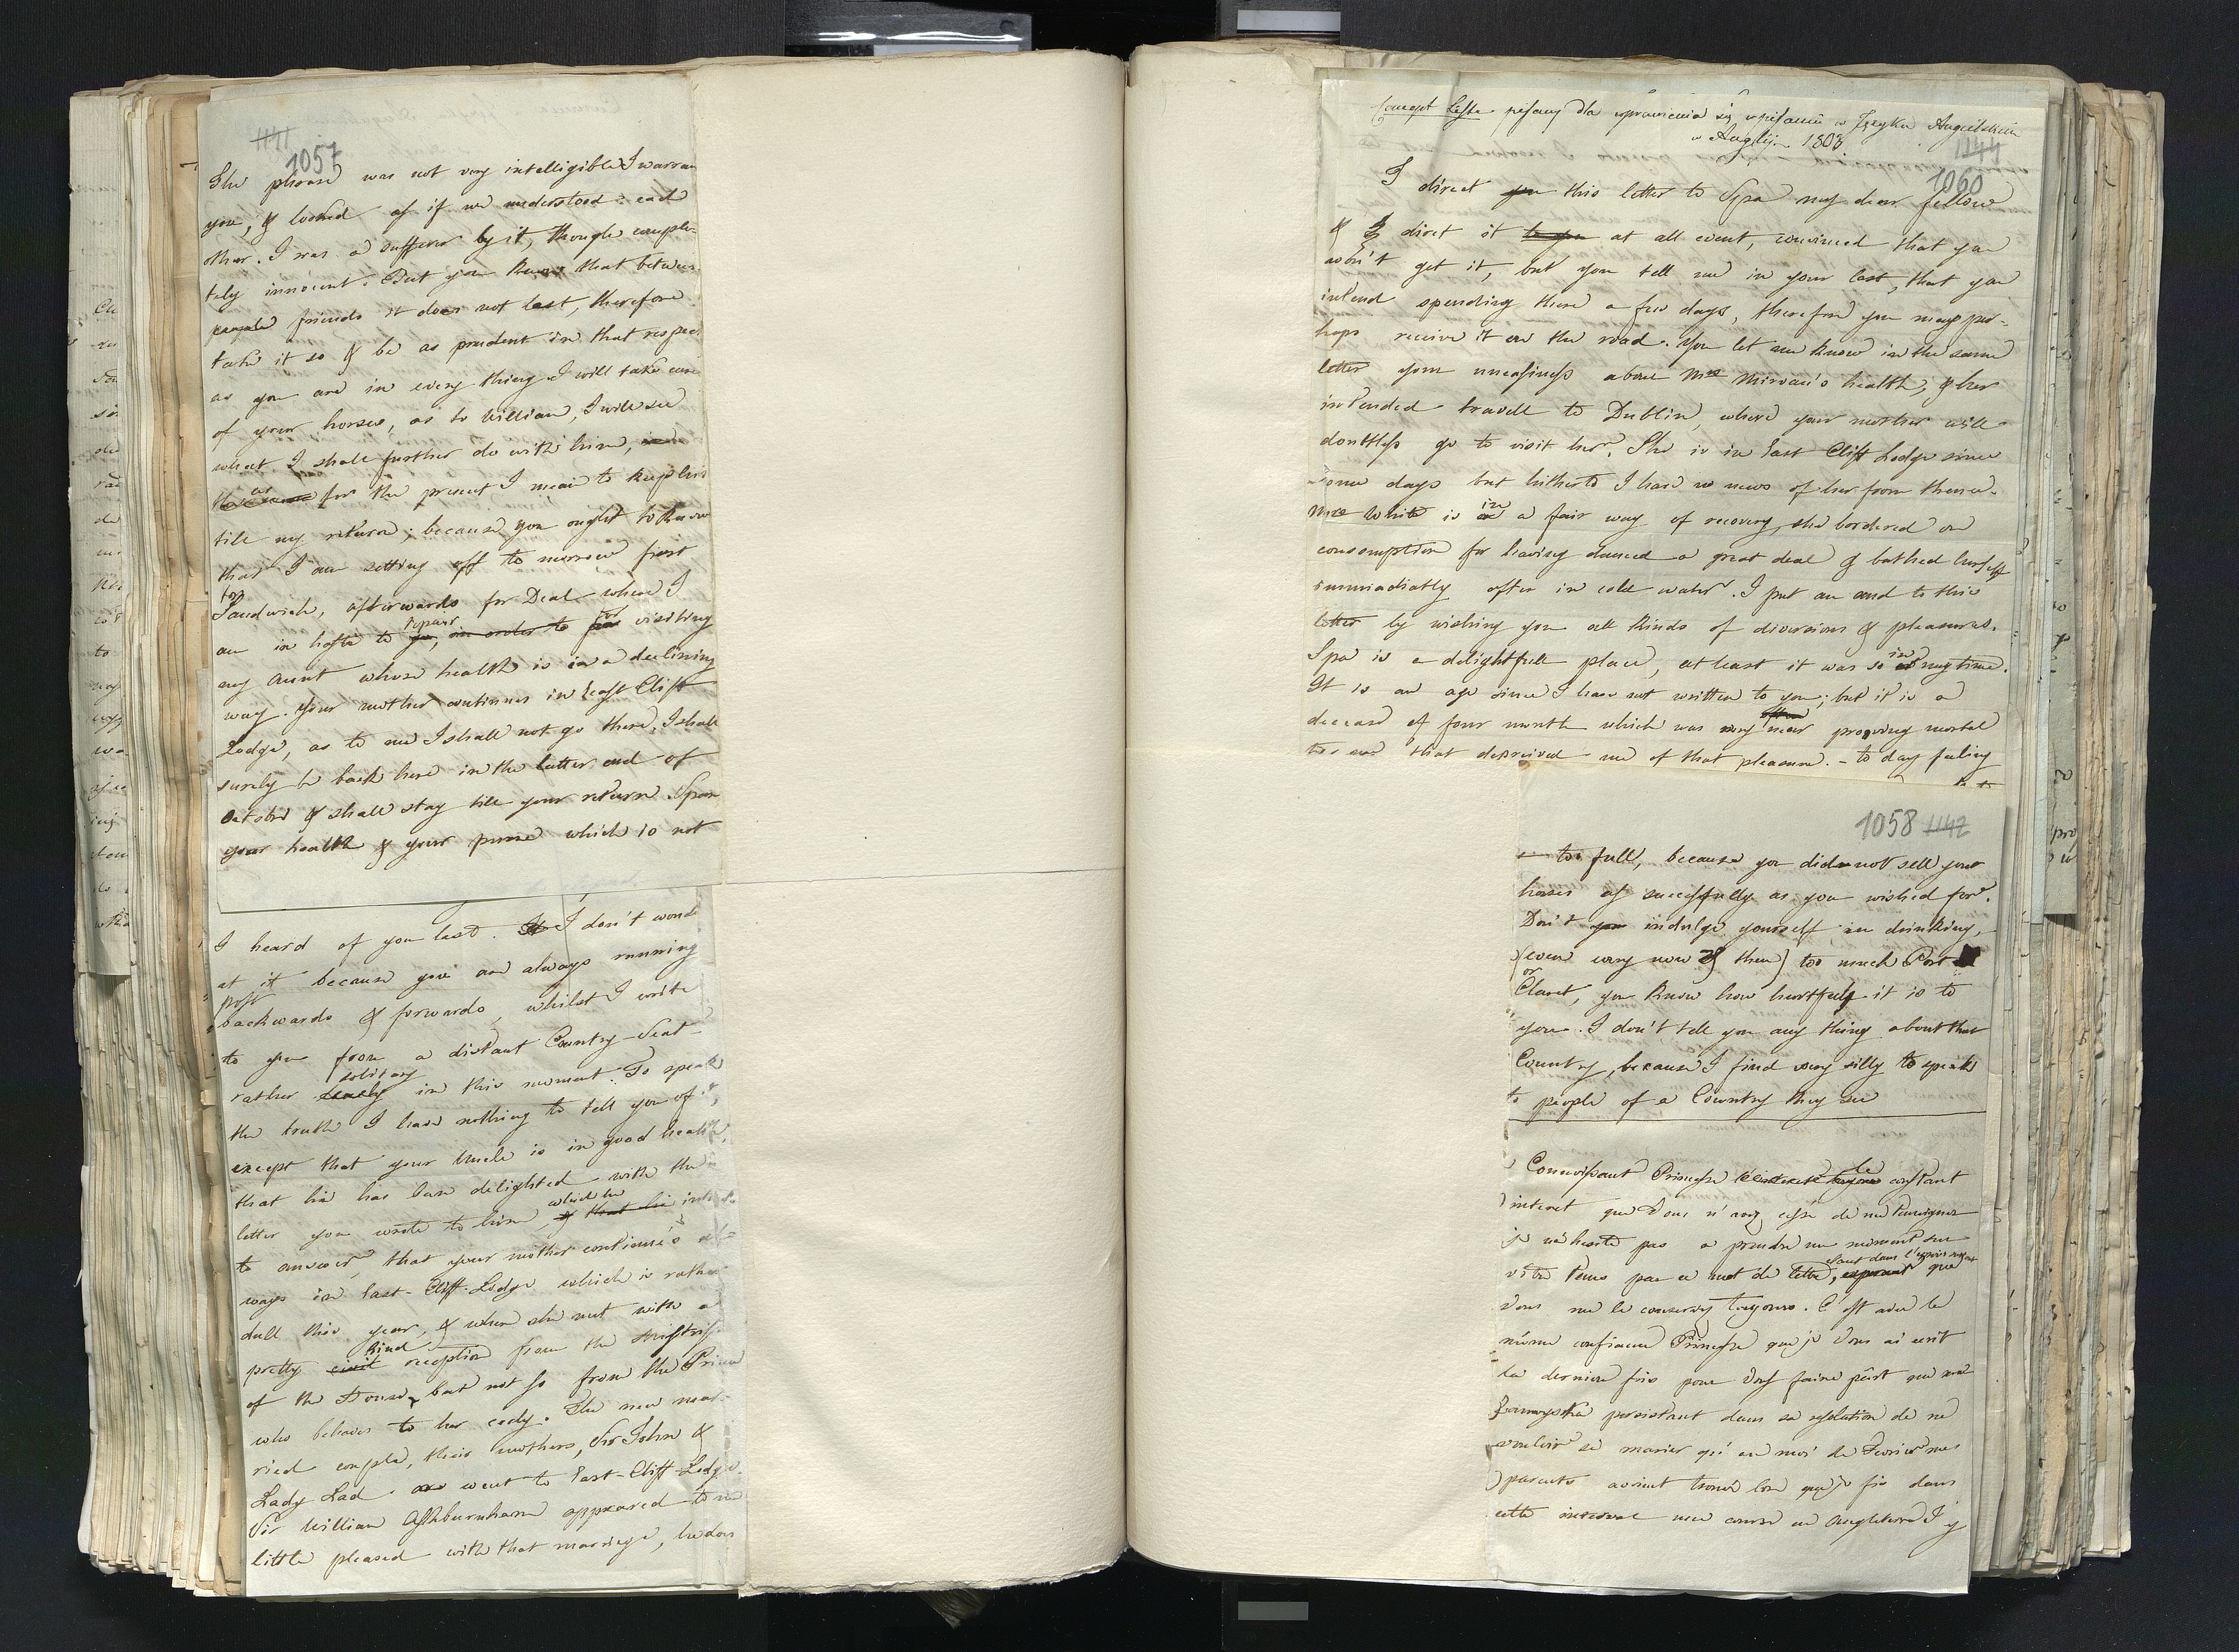 1141
1057
The phrase was not very intelligible I warran
you, & looked as if we understood each
other. I was a sufferer by it, though comple-
tely innocent. But you know that between
friends it does not last, therefore
take it so & be as prudent in that respec
as you are in every thing I will take care
of your horses, as to William, I will see
what I shall further do with him,
for the present I mean to keep him
till my return; because you ought to know
that I am setting off to morrow first
for
Sandwich, afterwards for Deal where I
am in haste to repair, in order to for visiting
my aunt whose health is in a declining
way. Your mother continues in East Cliff
Lodge, as to me I shall not go there, I shall
surely be back here in the latter end of
October & shall stay till your return. Spare
your health & your purse which is not
I heard of you last. I don't wond
at it because you are always running
post
backwards & forwards, whilst I write
to you from a distant Country-Seat
solitary
rather lonely in this moment. To speak
the truth I have nothing to tell you of,
except that your Uncle is in good health,
that he has been delighted with the
letter you wrote to him, which he & that he
to answer, that your mother continues al
ways in East-Cliff-Lodge which is rather
dull this year, & where she met with a
kind
pretty civil reception from the Mistriss
of the House, but not so from the Prince
who behaves to her cooly. The new mar-
ried couple, their mothers, Sir John &
Lady Lad. went to East-Cliff-Lodge.
Sir William Ashburnham appeared to me
little pleased with that marriage, he does
Concept Listu pisany dla wprawienia się w pisaniu w Języku Angielskim
w Anglij 1803.
1144
1060
I direct you this letter to Spa my dear fellow
& I direct it to you at all event, convinced that you
won't get it, but you tell me in your last, that you
intend spending there a few days, therefore you may per-
haps receive it on the road. You let me know in the same
letter your uneasiness about Mrs Mirvan's health, & her
intended travell to Dublin, where your mother will
doubtless go to visit her. She is in East Cliff Lodge since
some days but hitherto I have no news of her from thence.
in
Mrs White is on a fair way of recovery, she bordered on
consomption for having danced a great deal & bathed herself
immiadiatly after in cold water. I put an end to this
letter by wishing you all kinds of diversions & pleasures.
Spa is a delightfull place, at least it was so in my time.
It is an age since I have not written to you; but it is a
decease of four month which was very near proving mortal
to me that deprived me of that pleasure. - to day feeling
1058 1142
too full, because you did not sell your
horses as succesfully as you wished for.
Don't you indulge yourself in drinking,
(even every now & then) too much Port
or
Claret, you know how hurtfull it is to
you. I don't tell you any thing about that
Country, because I find very silly to speak
to people of a Country they see
Connoissant Princesse l'interest le constant
interet que Vous n'avez cessé de me temoigner
je n'hesite pas a prendre un moment sur
votre tems par ce mot de lettre, etant dans l'espoir esperant que
Vous me le conservez toujours. C'est avec la
même confiance Princesse que je Vous ai ecrit
la derniere fois pour Vous faire part que ma
persistant dans sa resolution de ne
vouloir se marier qu'au moi de Fevrier mes
parents avoient trouvé bon que je fis dans
cette interval une course en Angleterre J'y